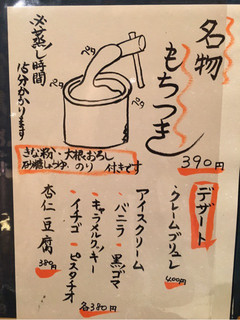 名物
もちつき
390円
ペタ
ペタ
ペタ
※蒸し時間
15分かかります
きな粉・大根おろし
砂糖しょうゆ・のり 付きです
デザート
・クレームブリュレ
400円
アイスクリーム
・バニラ・黒ゴマ
・キャラメルクッキー
・イチゴ・ピスタチオ
各380円
杏仁豆腐
380円